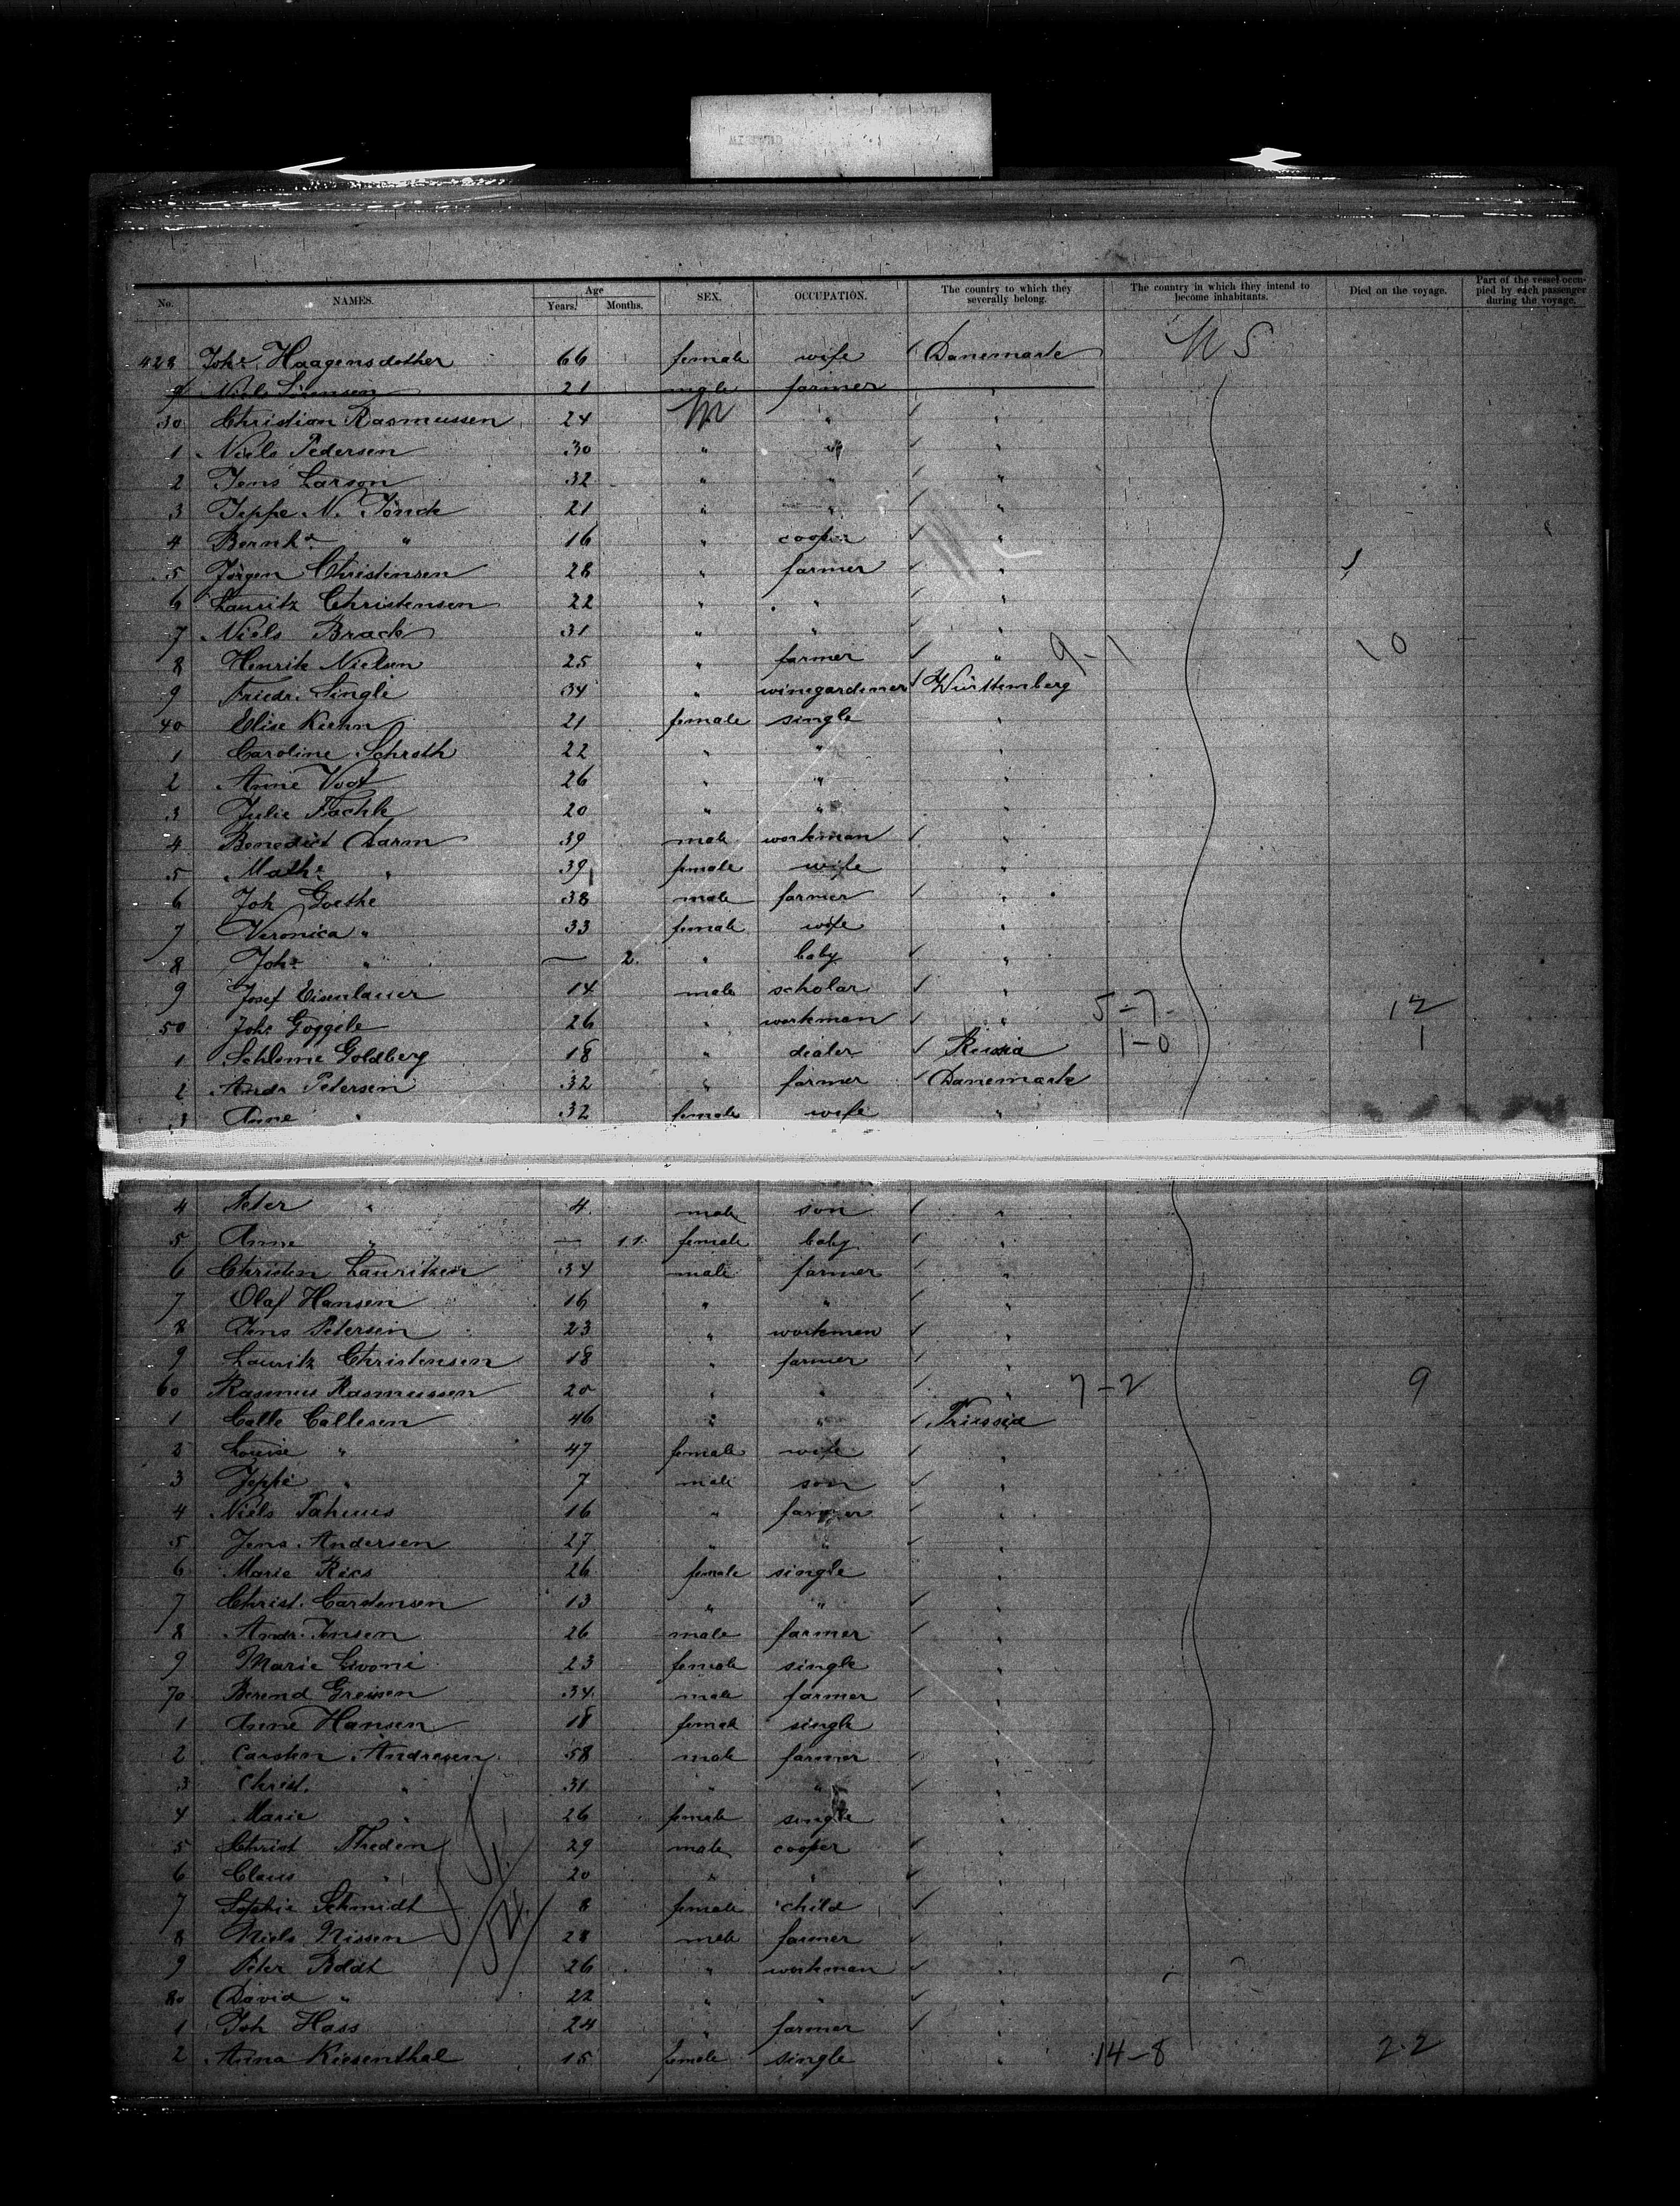 No. NAMES. Age Years. Months. SEX. OCCUPATION. The country to which they severally belong. The country in which they intend to become inhabitants. Died on the voyage. Part of the vessel occupied by each passenger during the voyage.
428 Johe. Haagensdother 66 female wife Danemark U S
9 Niels Sörensen 21 male farmer "
30 Christian Rasmussen 24 M " "
1 Niels Pedersen 30 " " "
2 Jens Larson 32 " " "
3 Jeppe N. Jönck 21 " " "
4 Bernhd. " 16 " cooper "
5 Jörgen Christensen 28 " farmer "
6 Lauritz Christensen 22 " " "
7 Niels Brack 31 " " "
8 Henrik Nielsen 25 " farmer " 9-1 10
9 Friedr. Single 34 " winegardener Württemberg
40 Elise Kuhn 21 female single "
1 Caroline Schroth 22 " " "
2 Anne Vogt 26 " " "
3 Julie Fachle 20 " " "
4 Benedict Darm 39 male workman "
5 Mathe " 39 female wife "
6 Joh Goethe 38 male farmer "
7 Veronica " 33 female wife "
8 Johe " — 2 " baby "
9 Josef Eisenlauer 14 male scholar "
50 Johs Göggele 26 " workman " 5-7- 12
1 Schlome Goldberg 18 " dealer Russia 1-0 1
2 Andr Petersen 32 " farmer Danemark
3 Anne " 32 female wife "
4 Peter " 4 male son "
5 Anne " — 11 female baby "
6 Christen Lauritzen 34 male farmer "
7 Olaf Hansen 16 " " "
8 Jens Petersen 23 " workman "
9 Lauritz Christensen 18 " farmer "
60 Rasmus Rasmussen 20 " " " 7-2 9
1 Calle Callesen 46 " " Prussia
2 Louise " 47 female wife "
3 Jeppe " 7 male son "
4 Niels 16 " farmer "
5 Jens Andersen 27 " " "
6 Marie Ries 26 female single "
7 Christ. Carstensen 13 " " "
8 Andr. Jensen 26 male farmer "
9 Marie 23 female single "
70 Berend Greisen 34 male farmer "
1 Anne Hansen 18 female single "
2 Carsten Andresen 58 male farmer "
3 Christ. " 31 " " "
4 Marie " 26 female single "
5 Christ Theden 29 male cooper "
6 Claus " 20 " " "
7 Sophie Schmidt 8 female child "
8 Niels Nissen 28 male farmer "
9 Peter Boldt 26 " workman "
80 David " 22 " " "
1 Joh Hass 24 " farmer "
2 Anna Kiesenthal 15 female single " 14-8 22